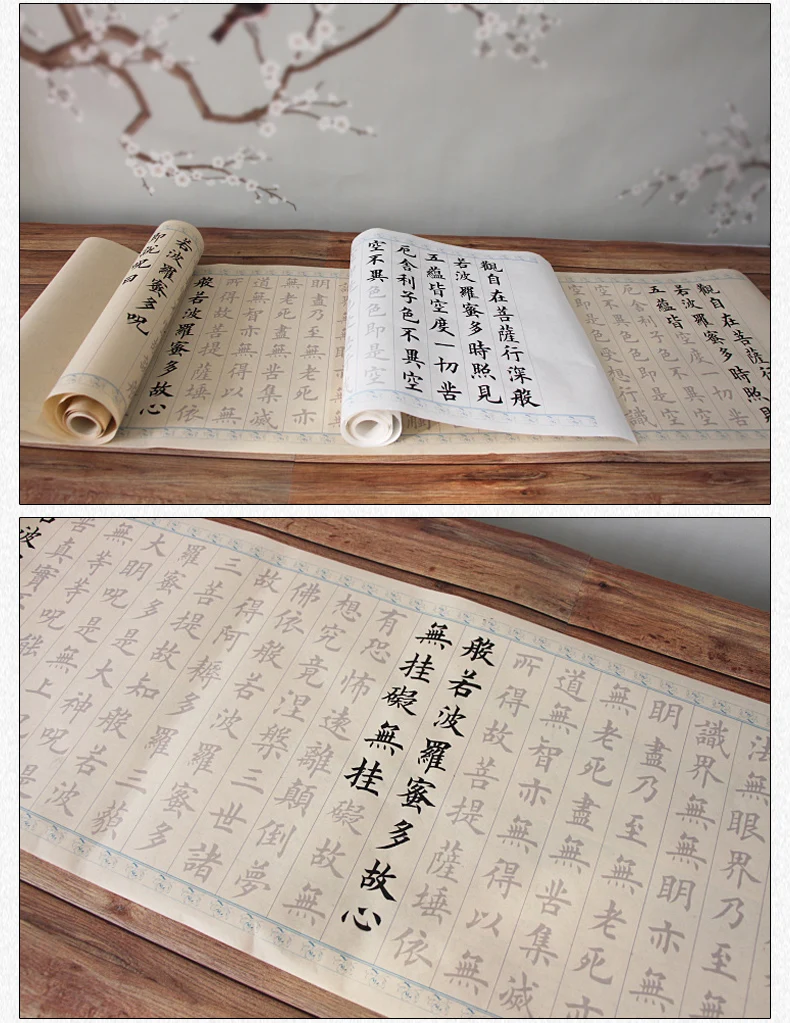 觀自在菩薩行
若波羅蜜多時照見
五蘊皆空度一切苦
厄舍利子色不異空
空不異色色即是空
空即是色受想行識
觀自在菩薩行深般
若波羅蜜多時照見
五蘊皆空度一切苦
厄舍利子色不異空
空不異色色即是空
明盡乃至無老死亦
無老死盡無苦集滅
道無智亦無得以無
所得故菩提薩埵依
般若波羅蜜多故心
若波羅蜜多呪
即說呪曰
法無眼界乃至無
識界無無明亦無
明盡乃至無老死亦
無老死盡無苦集滅
道無智亦無得以無
所得故菩提薩埵依
般若波羅蜜多故心
無挂礙無挂礙故無
有恐怖遠離顛倒夢
想究竟涅槃三世諸
佛依般若波羅蜜多
故得阿耨多羅三藐
三菩提故知般若波
羅蜜多是大神呪
大明呪是無上呪是
無等等呪能
苦真實
若波